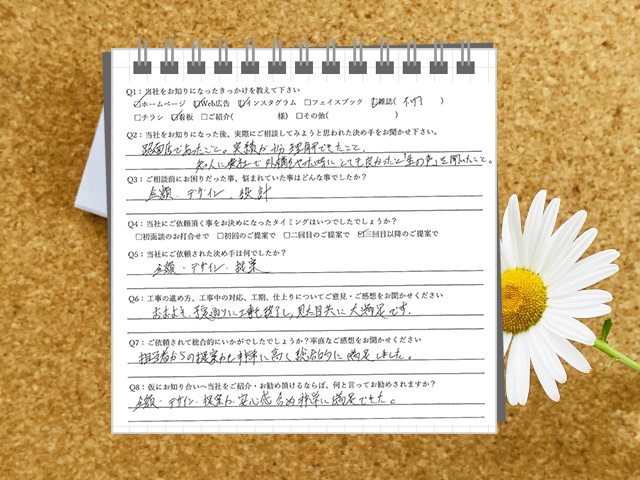 Q1：当社をお知りになったきっかけを教えて下さい
☑ホームページ ☑Web広告 ☑インスタグラム □フェイスブック ☑雑誌( )
□チラシ ☑看板 □ご紹介( 様) □その他( )
Q2：当社をお知りになった後、実際にご相談してみようと思われた決め手をお聞かせ下さい。
路面店であったこと。実績から理解できたこと、
知人に貴社で外構をやった時にとても良かったと「生の声」を聞いたこと。
Q3：ご相談前にお困りだった事、悩まれていた事はどんな事でしたか？
金額・デザイン・設計
Q4：当社にご依頼頂く事をお決めになったタイミングはいつでしたでしょうか？
□初面談のお打合せで □初回のご提案で □二回目のご提案で ☑三回目以降のご提案で
Q5：当社にご依頼された決め手は何でしたか？
金額・デザイン・提案
Q6：工事の進め方、工事中の対応、工期、仕上りについてご意見・ご感想をお聞かせください
おおよそ、予定通りに工事も終了し、見た目共に大満足です。
Q7：ご依頼されて総合的にいかがでしたでしょうか？率直なご感想をお聞かせください
担当者からの提案力も非常に高く総合的に満足しました。
Q8：仮にお知り合いへ当社をご紹介・お勧め頂けるならば、何と言ってお勧めされますか？
金額・デザイン・提案力・安心感 非常に満足できた。